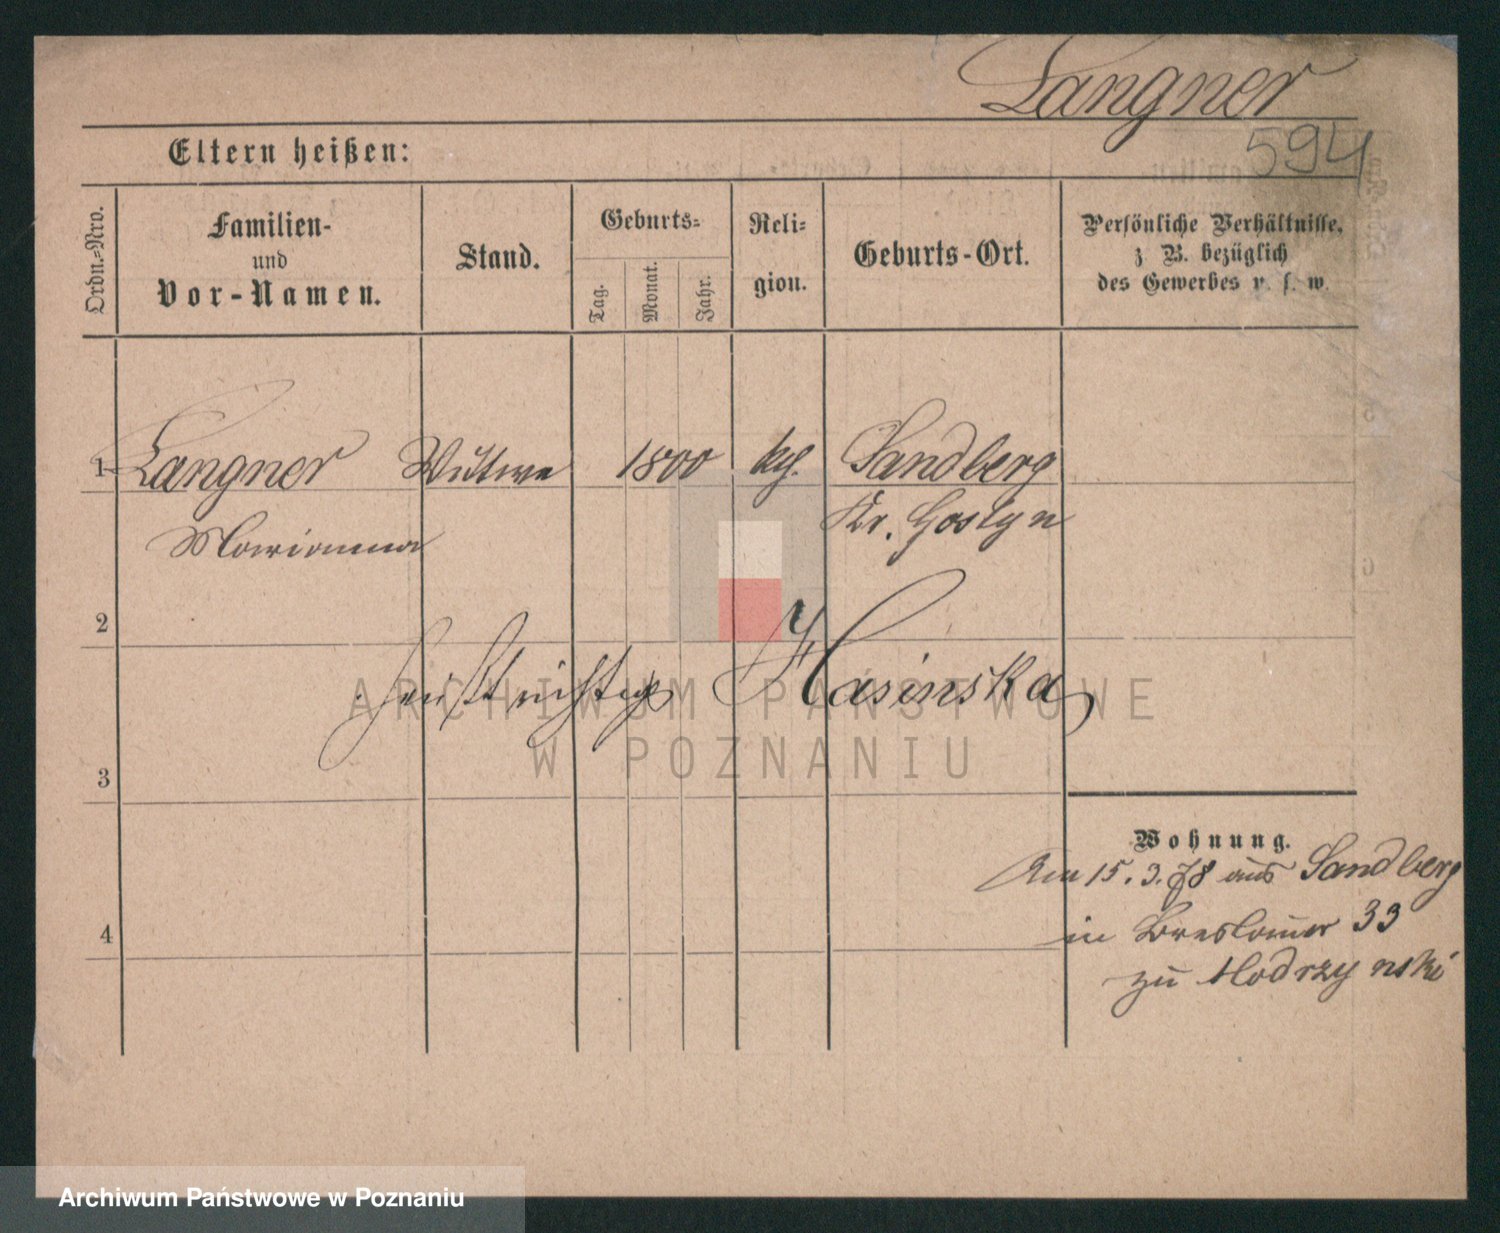 Langner
594
Eltern heißen:
Ordn.=Nro.
Familien-
und
Vor-Namen.
Stand.
Geburts=
Tag.
Monat.
Jahr.
Reli=
gion.
Geburts-Ort.
Persönliche Verhältnisse,
z B. bezüglich
des Gewerbes u. s. w.
1 Langner Wittwe 1800 kth. Sandberg
Marianna Kr. Gostyn
2
heißt richtig Hasinska
ARCHIWUM PAŃSTWOWE
W POZNANIU
3
Wohnung.
Am 15.3.78 aus Sandberg
in Breslauer 33
zu Modrzynski
4
Archiwum Państwowe w Poznaniu